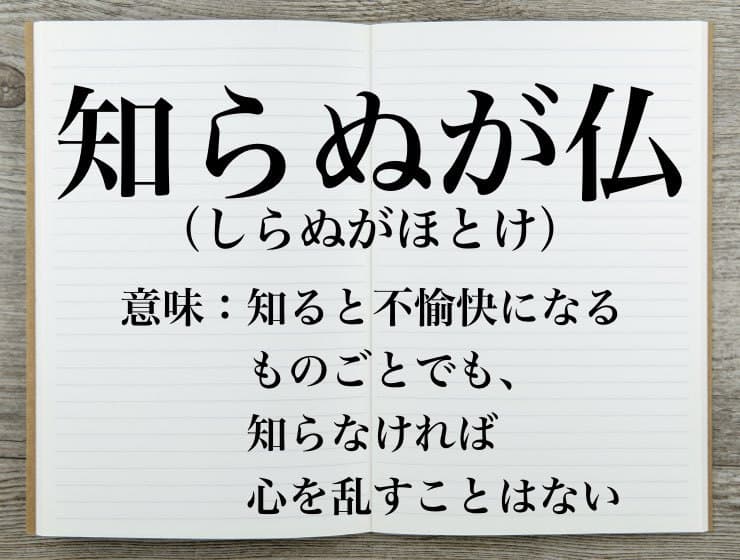 知らぬが仏
（しらぬがほとけ）
意味：知ると不愉快になる
ものごとでも、
知らなければ
心を乱すことはない